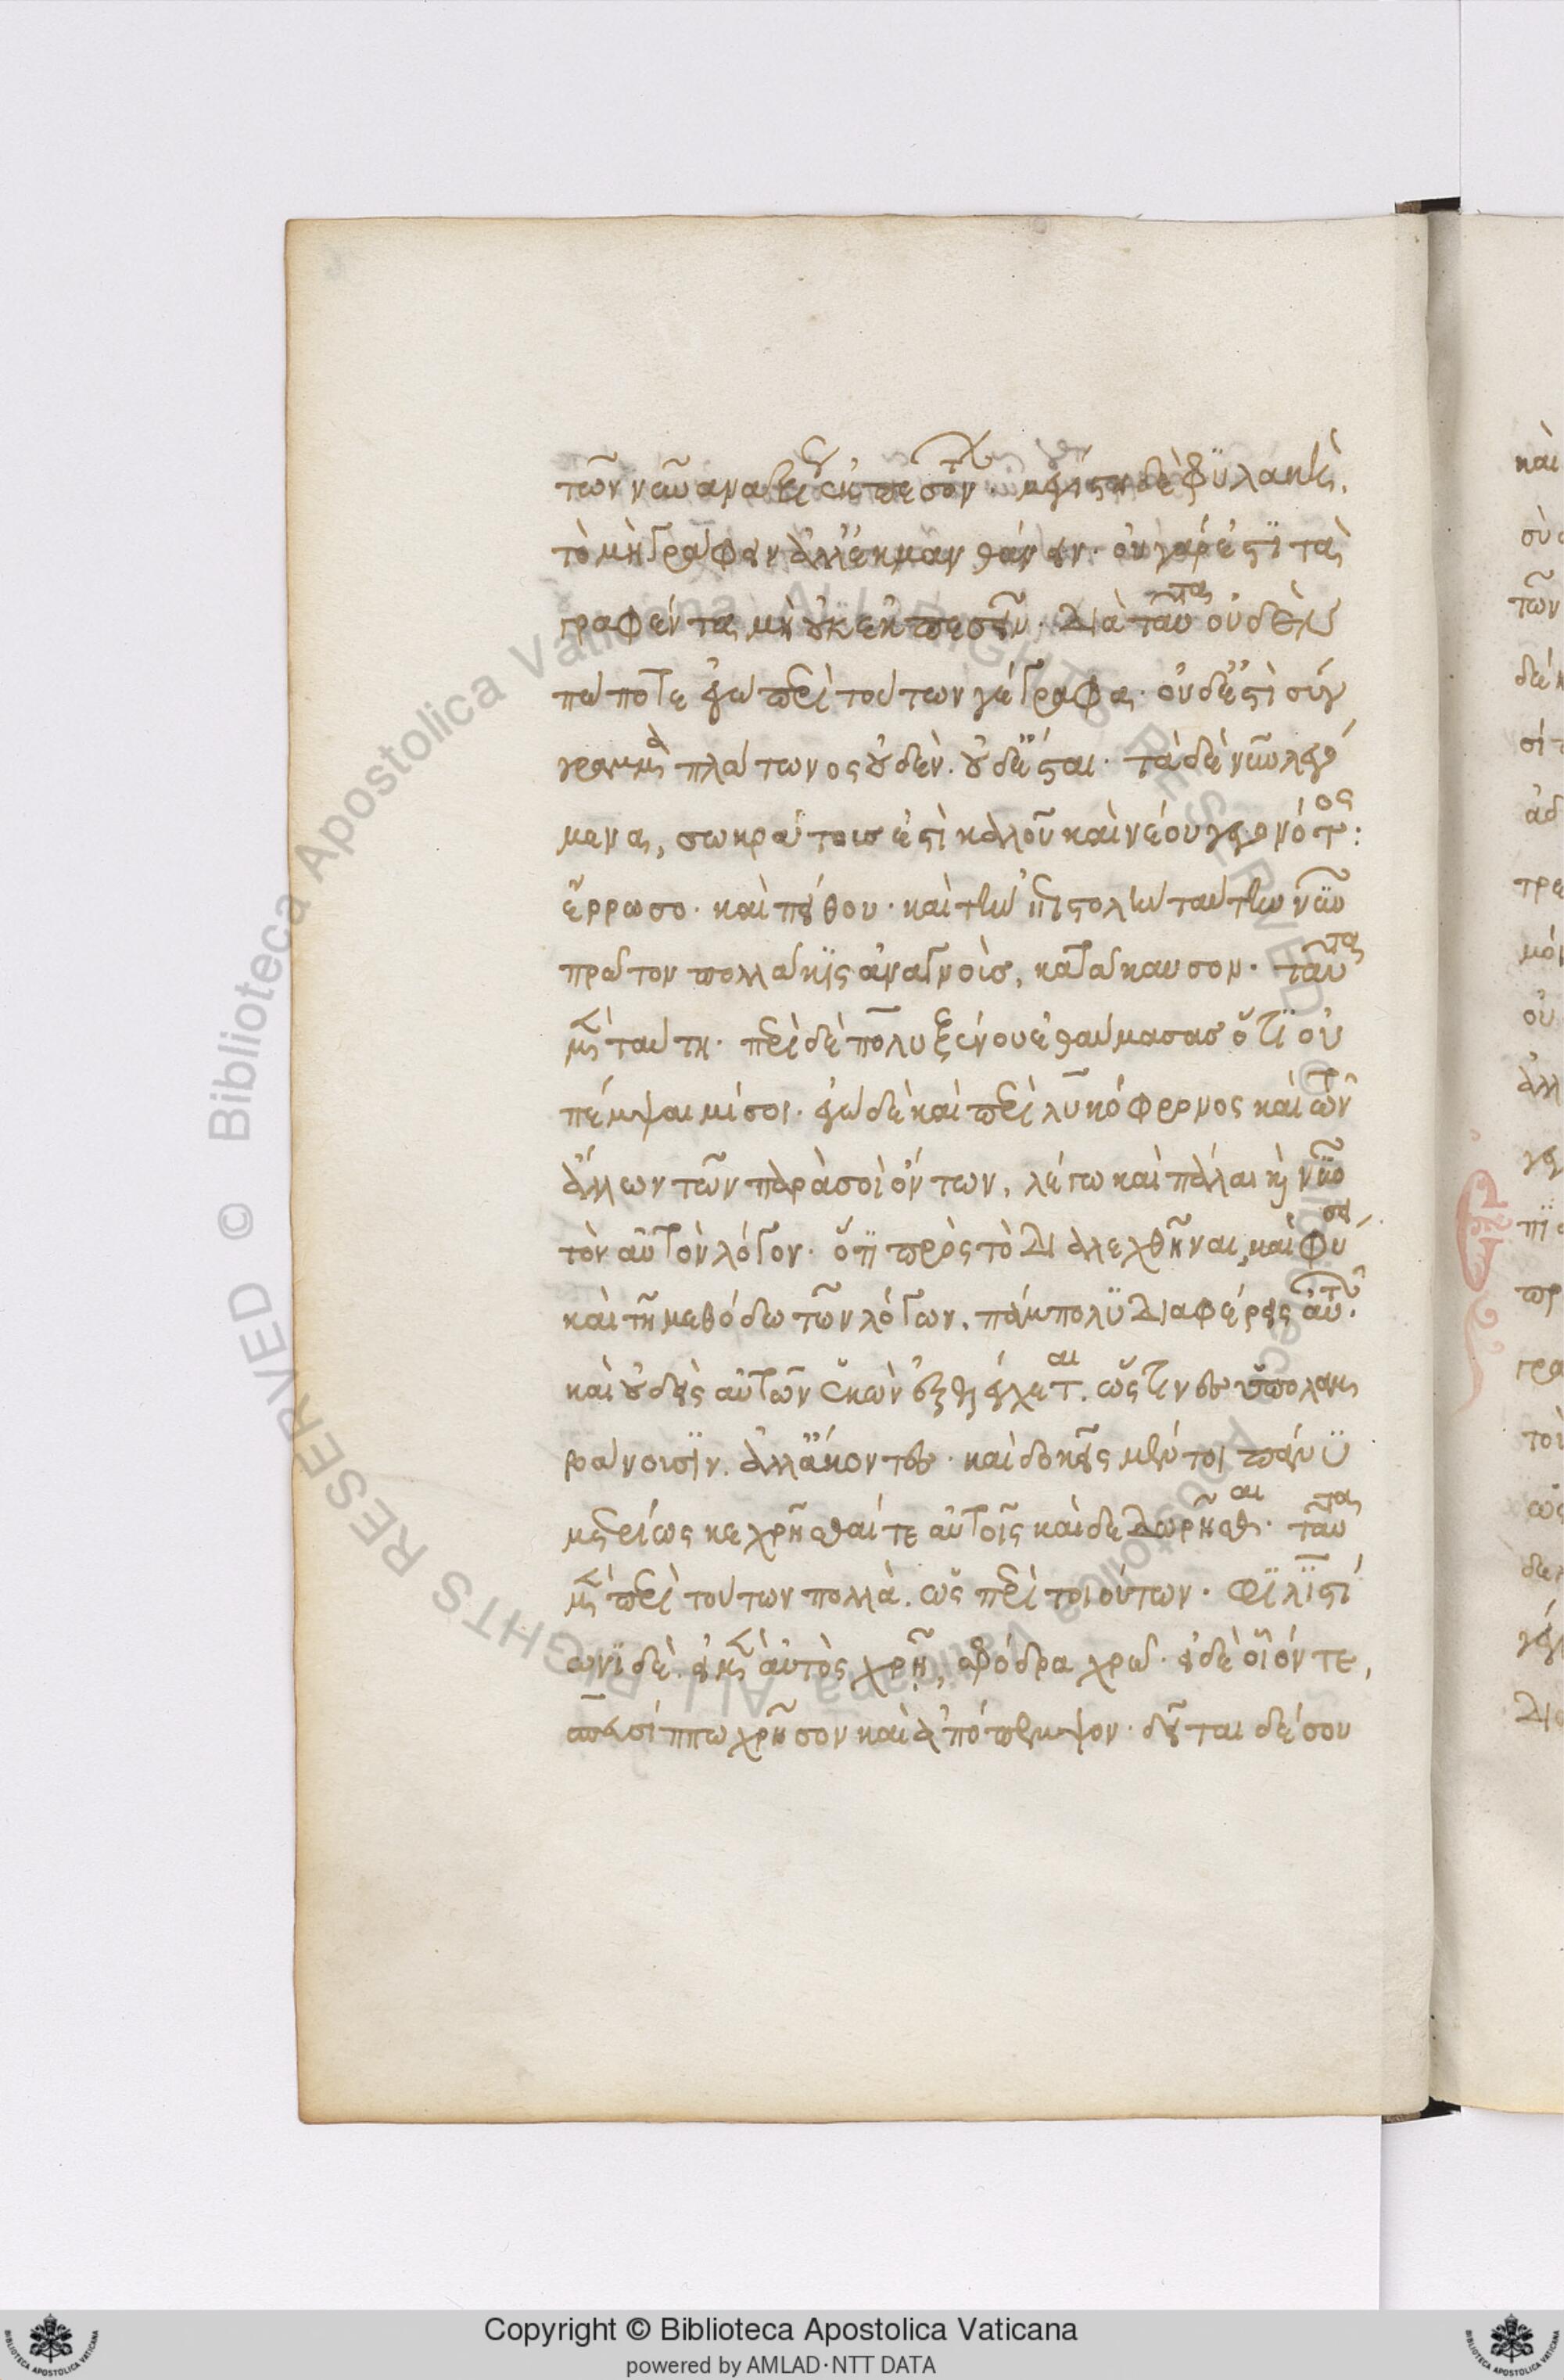 τῶν νῦν ἀναξίως ἐκπεσόντων. μεγίστη δὲ φϋλακὴ,
τὸ μὴ γράφειν ἀλλ' ἐκμανθάνειν. οὐ γάρ ἐστϊ τὰ
γραφέντα μὴ οὐκ ἐκπεσεῖν. διὰ ταῦτα οὐδὲν
πώποτε ἐγὼ περὶ τούτων γέγραφα. οὐδ' ἔστι σύγ
γραμμα πλάτωνος οὐδὲν. οὐδ' ἔσται. τὰ δὲ νῦν λεγό
μενα, σωκράτους ἐστὶ καλοῦ καὶ νέου γεγονότος:
ἔρρωσο. καὶ πείθου. καὶ τὴν ἐπιστολὴν ταύτην νῦν
πρῶτον πολλάκϊς ἀναγνοὺς, κατάκαυσον. ταῦτα
μὲν ταύτη. περὶ δὲ πολυξένου ἐθαύμασας ὅτϊ οὐ
πέμψαιμί σοι. ἐγὼ δὲ καὶ περὶ λυκόφρονος καὶ τῶν
ἄλλων τῶν παρὰ σοὶ ὄντων, λέγω καὶ πάλαι καὶ νῦν
τὸν αὐτὸν λόγον. ὅτϊ πρὸς τὸ διαλεχθῆναι, καὶ φύσει
καὶ τῆ μεθόδω τῶν λόγων, πάμπολϋ διαφέρεις αὐτῶν.
καὶ οὐδεὶς αὐτῶν ἑκὼν ἐξελέγχεται. ὥς τινες ὑπολαμ
βάνουσϊν. ἀλλ' ἄκοντες. καὶ δοκεῖς μέντοι πάνϋ
μετρίως κεχρῆσθαί τε αὐτοῖς καὶ δεδωρῆσθαι. ταῦτα
μὲν περὶ τούτων πολλὰ. ὡς περὶ τοιούτων. φϊλϊστί
ωνϊ δὲ. εἰ μὲν αὐτὸς χρῆ, σφόδρα χρῶ. εἰ δὲ οἷόν τε,
σπευσίππω χρῆσον καὶ ἀπόπεμψον. δεῖται δέ σου
Copyright © Biblioteca Apostolica Vaticana
powered by AMLAD·NTT DATA
© Biblioteca Apostolica Vaticana ALL RIGHTS RESERVED